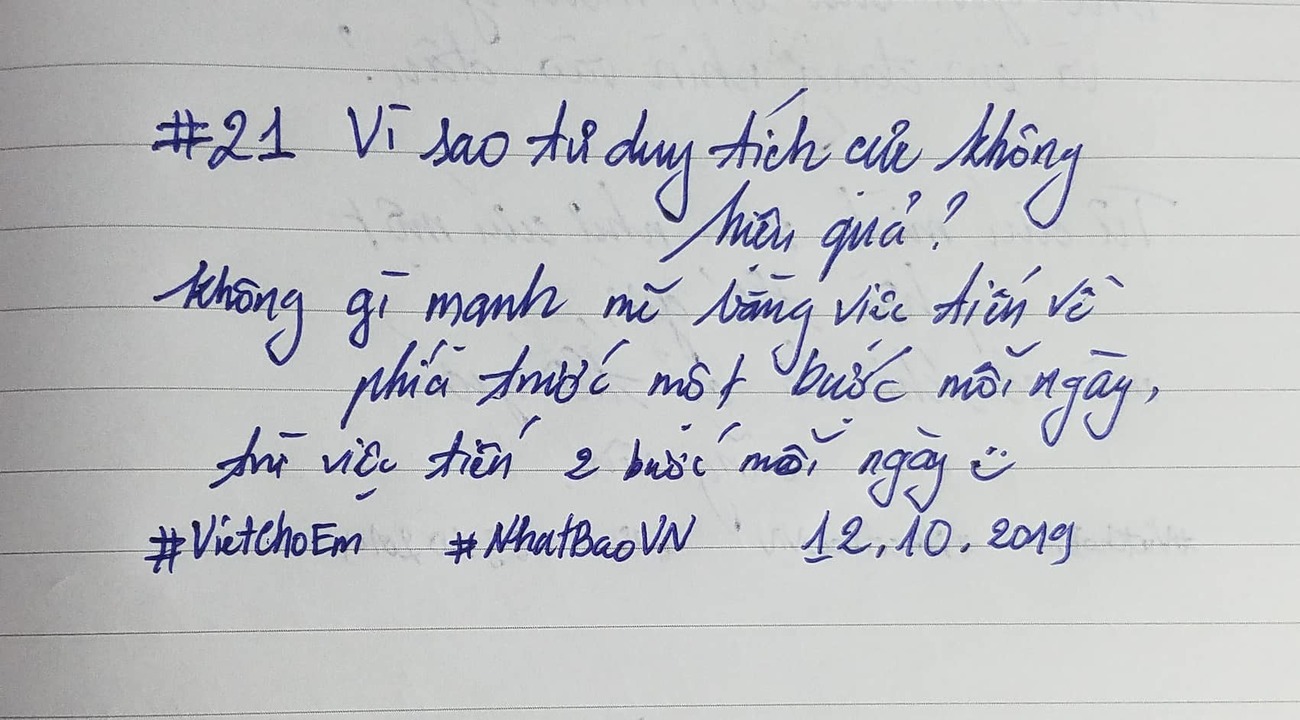 #21 Vì sao tư duy tích cực không
hiệu quả?
Không gì mạnh mẽ bằng việc tiến về
phía trước một bước mỗi ngày,
trừ việc tiến 2 bước mỗi ngày :)
#VietChoEm #NhatBaoVN 12.10.2019